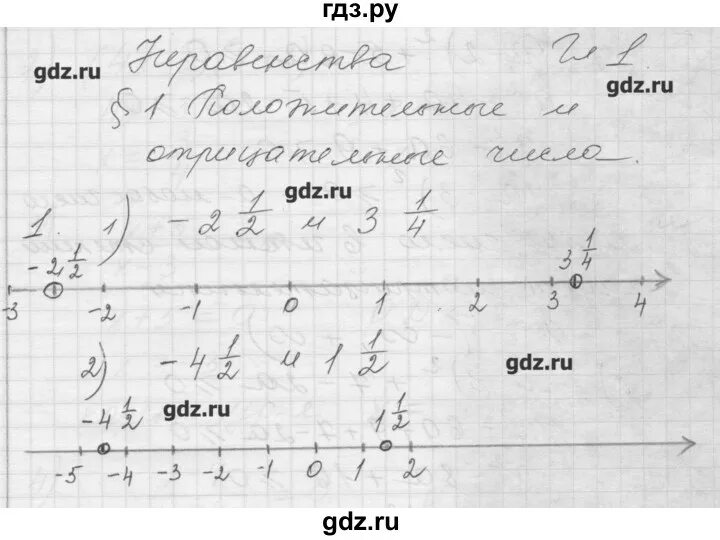 гдз.ру
Неравенства Гл 1.
gdz.ru gdz.ru
§ 1 Положительные и
отрицательные числа.
gdz.ru
1. 1) - 2 1/2 и 3 1/4
-2 1/2 3 1/4
-3 -2 -1 0 1 2 3 4
2) - 4 1/2 и 1 1/2
gdz.ru
-4 1/2 gdz.ru 1 1/2
-5 -4 -3 -2 -1 0 1 2
gdz.ru